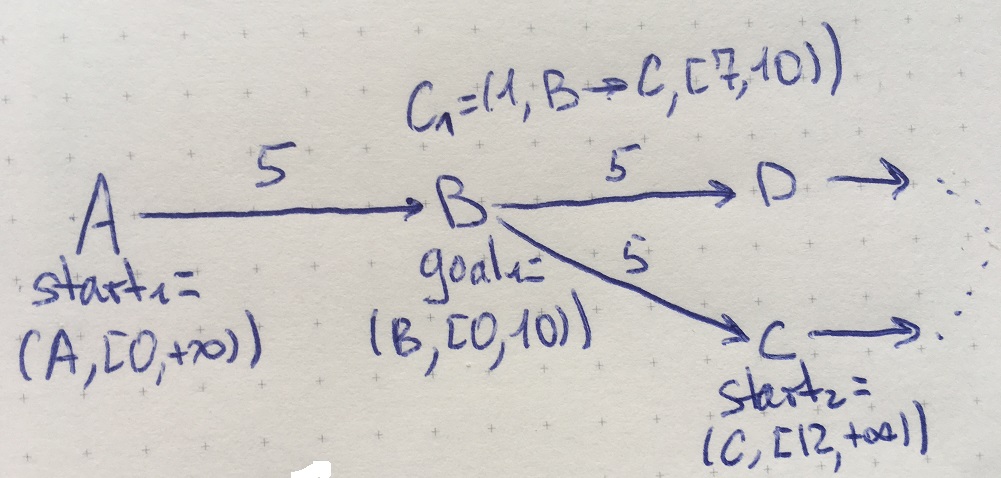 C₁=(1, B→C, [7,10))
5
5
A
B
D
5
start₁=
goal₁=
(A,[0,+∞))
(B,[0,10))
C
start₂=
(C,[12,+∞))